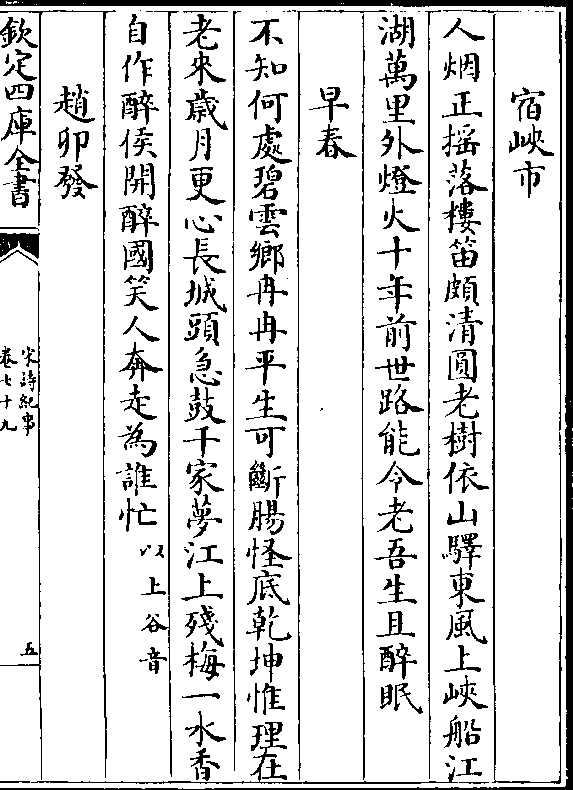 宿峽市
人烟正揺落樓笛頗清圓老樹依山驛東風上峽船江
湖萬里外燈火十年前世路能令老吾生且醉眠
早春
不知何處碧雲鄉冉冉平生可斷腸怪底乾坤惟理在
老來歲月更心長城頭急鼓千家夢江上殘梅一水香
自作醉侯開醉國笑人奔走為誰忙以上谷音
趙卯發
欽定四庫全書
宋詩紀事
卷七十九
五